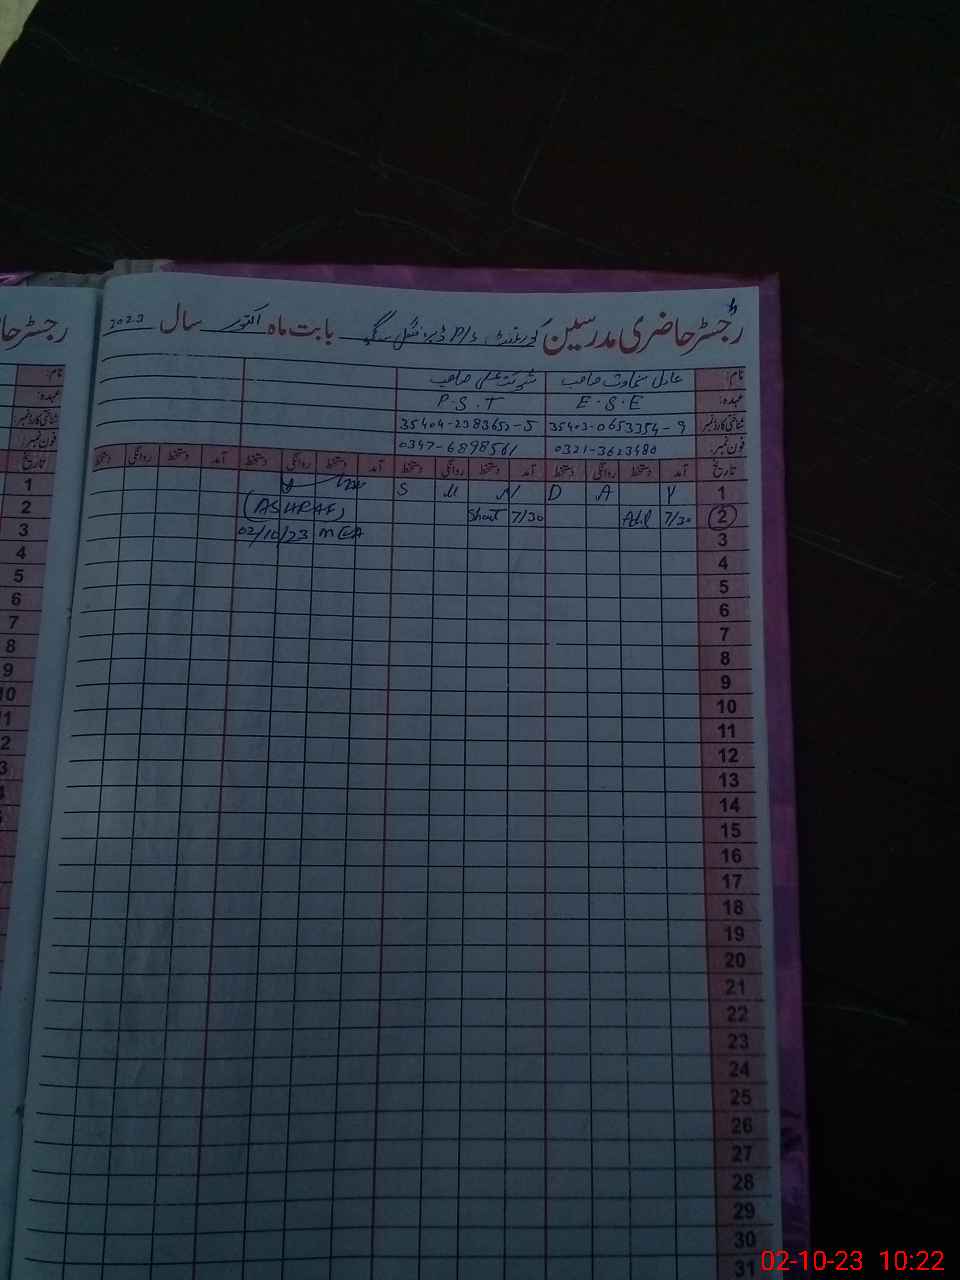 رجسٹر حاضری مدرسین گورنمنٹ P/S بابت ماہ اکتوبر سال 2023
نام: عادل سخاوت صاحب شوکت علی صاحب
عہدہ: E.S.E P.S.T
شناختی کارڈ نمبر: 35403-0653354-9 35404-2383652-5
فون نمبر: 0321-3623480 0347-6898561
تاریخ آمد دستخط روانگی دستخط آمد دستخط روانگی دستخط آمد دستخط روانگی دستخط آمد دستخط روانگی دستخط
1 Y A D N U S
2 7/30 Adil 7/30 (ASHRAF)
3 02/10/23 MEA
4
5
6
7
8
9
10
11
12
13
14
15
16
17
18
19
20
21
22
23
24
25
26
27
28
29
30
31
رجسٹر حا
1
2
3
4
5
6
7
8
9
10
02-10-23 10:22